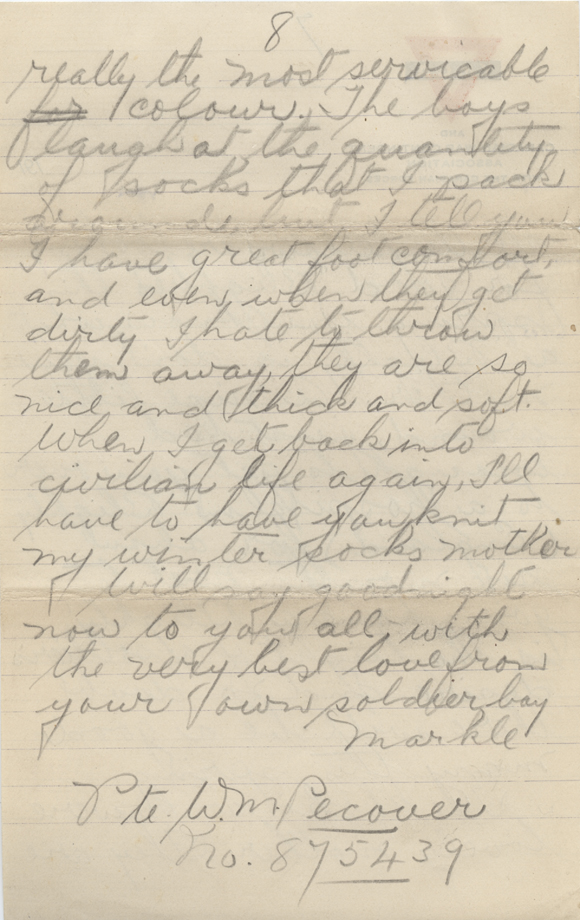 8
really the most servicable
for colour. The boys
laugh at the quantity
of socks that I pack
around, but I tell you
I have great foot comfort,
and even when they get
dirty I hate to throw
them away, they are so
nice and thick and soft.
When I get back into
civilian life again, I'll
have to have you knit
my winter socks mother
I will say goodnight
now to you all, with
the very best love from
your own soldier boy
Markle
Pte. W.M. Pecover
No. 875439